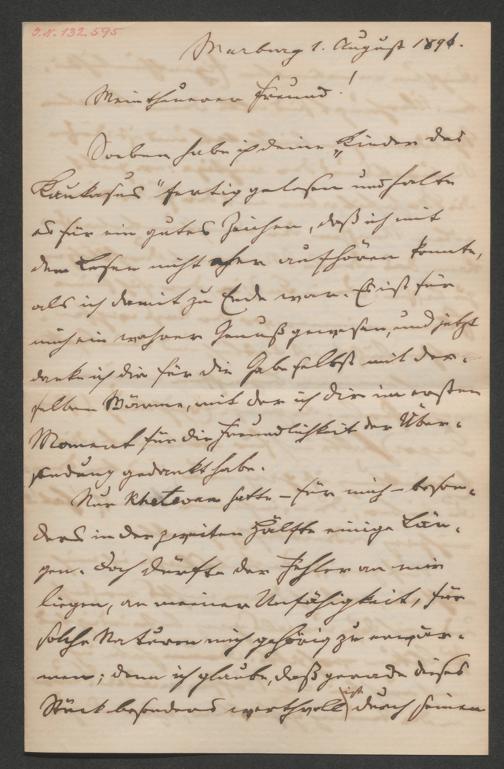 I.N. 132.595
Marburg 1. August 1894.
Mein theuerer Freund!
Soeben habe ich deine „Kinder des
Kaukasus" fertig gelesen und halte
es für ein gutes Zeichen, daß ich mit
dem Lesen nicht eher aufhören konnte,
als ich damit zu Ende war. Es ist für
mich ein wahrer Genuß gewesen, und jetzt
danke ich dir für die Gabe selbst mit der-
selben Wärme, mit der ich dir im ersten
Moment für die Freundlichkeit der Über-
sendung gedankt habe.
Nur Khetevan hatte – für mich – beson-
ders in der zweiten Hälfte einige Län-
gen. Doch dürfte der Fehler an mir
liegen, an meiner Unfähigkeit, für
solche Naturen mich gehörig zu erwär-
men; denn ich glaube, daß gerade dieses
Stück besonders werthvoll ist durch seinen